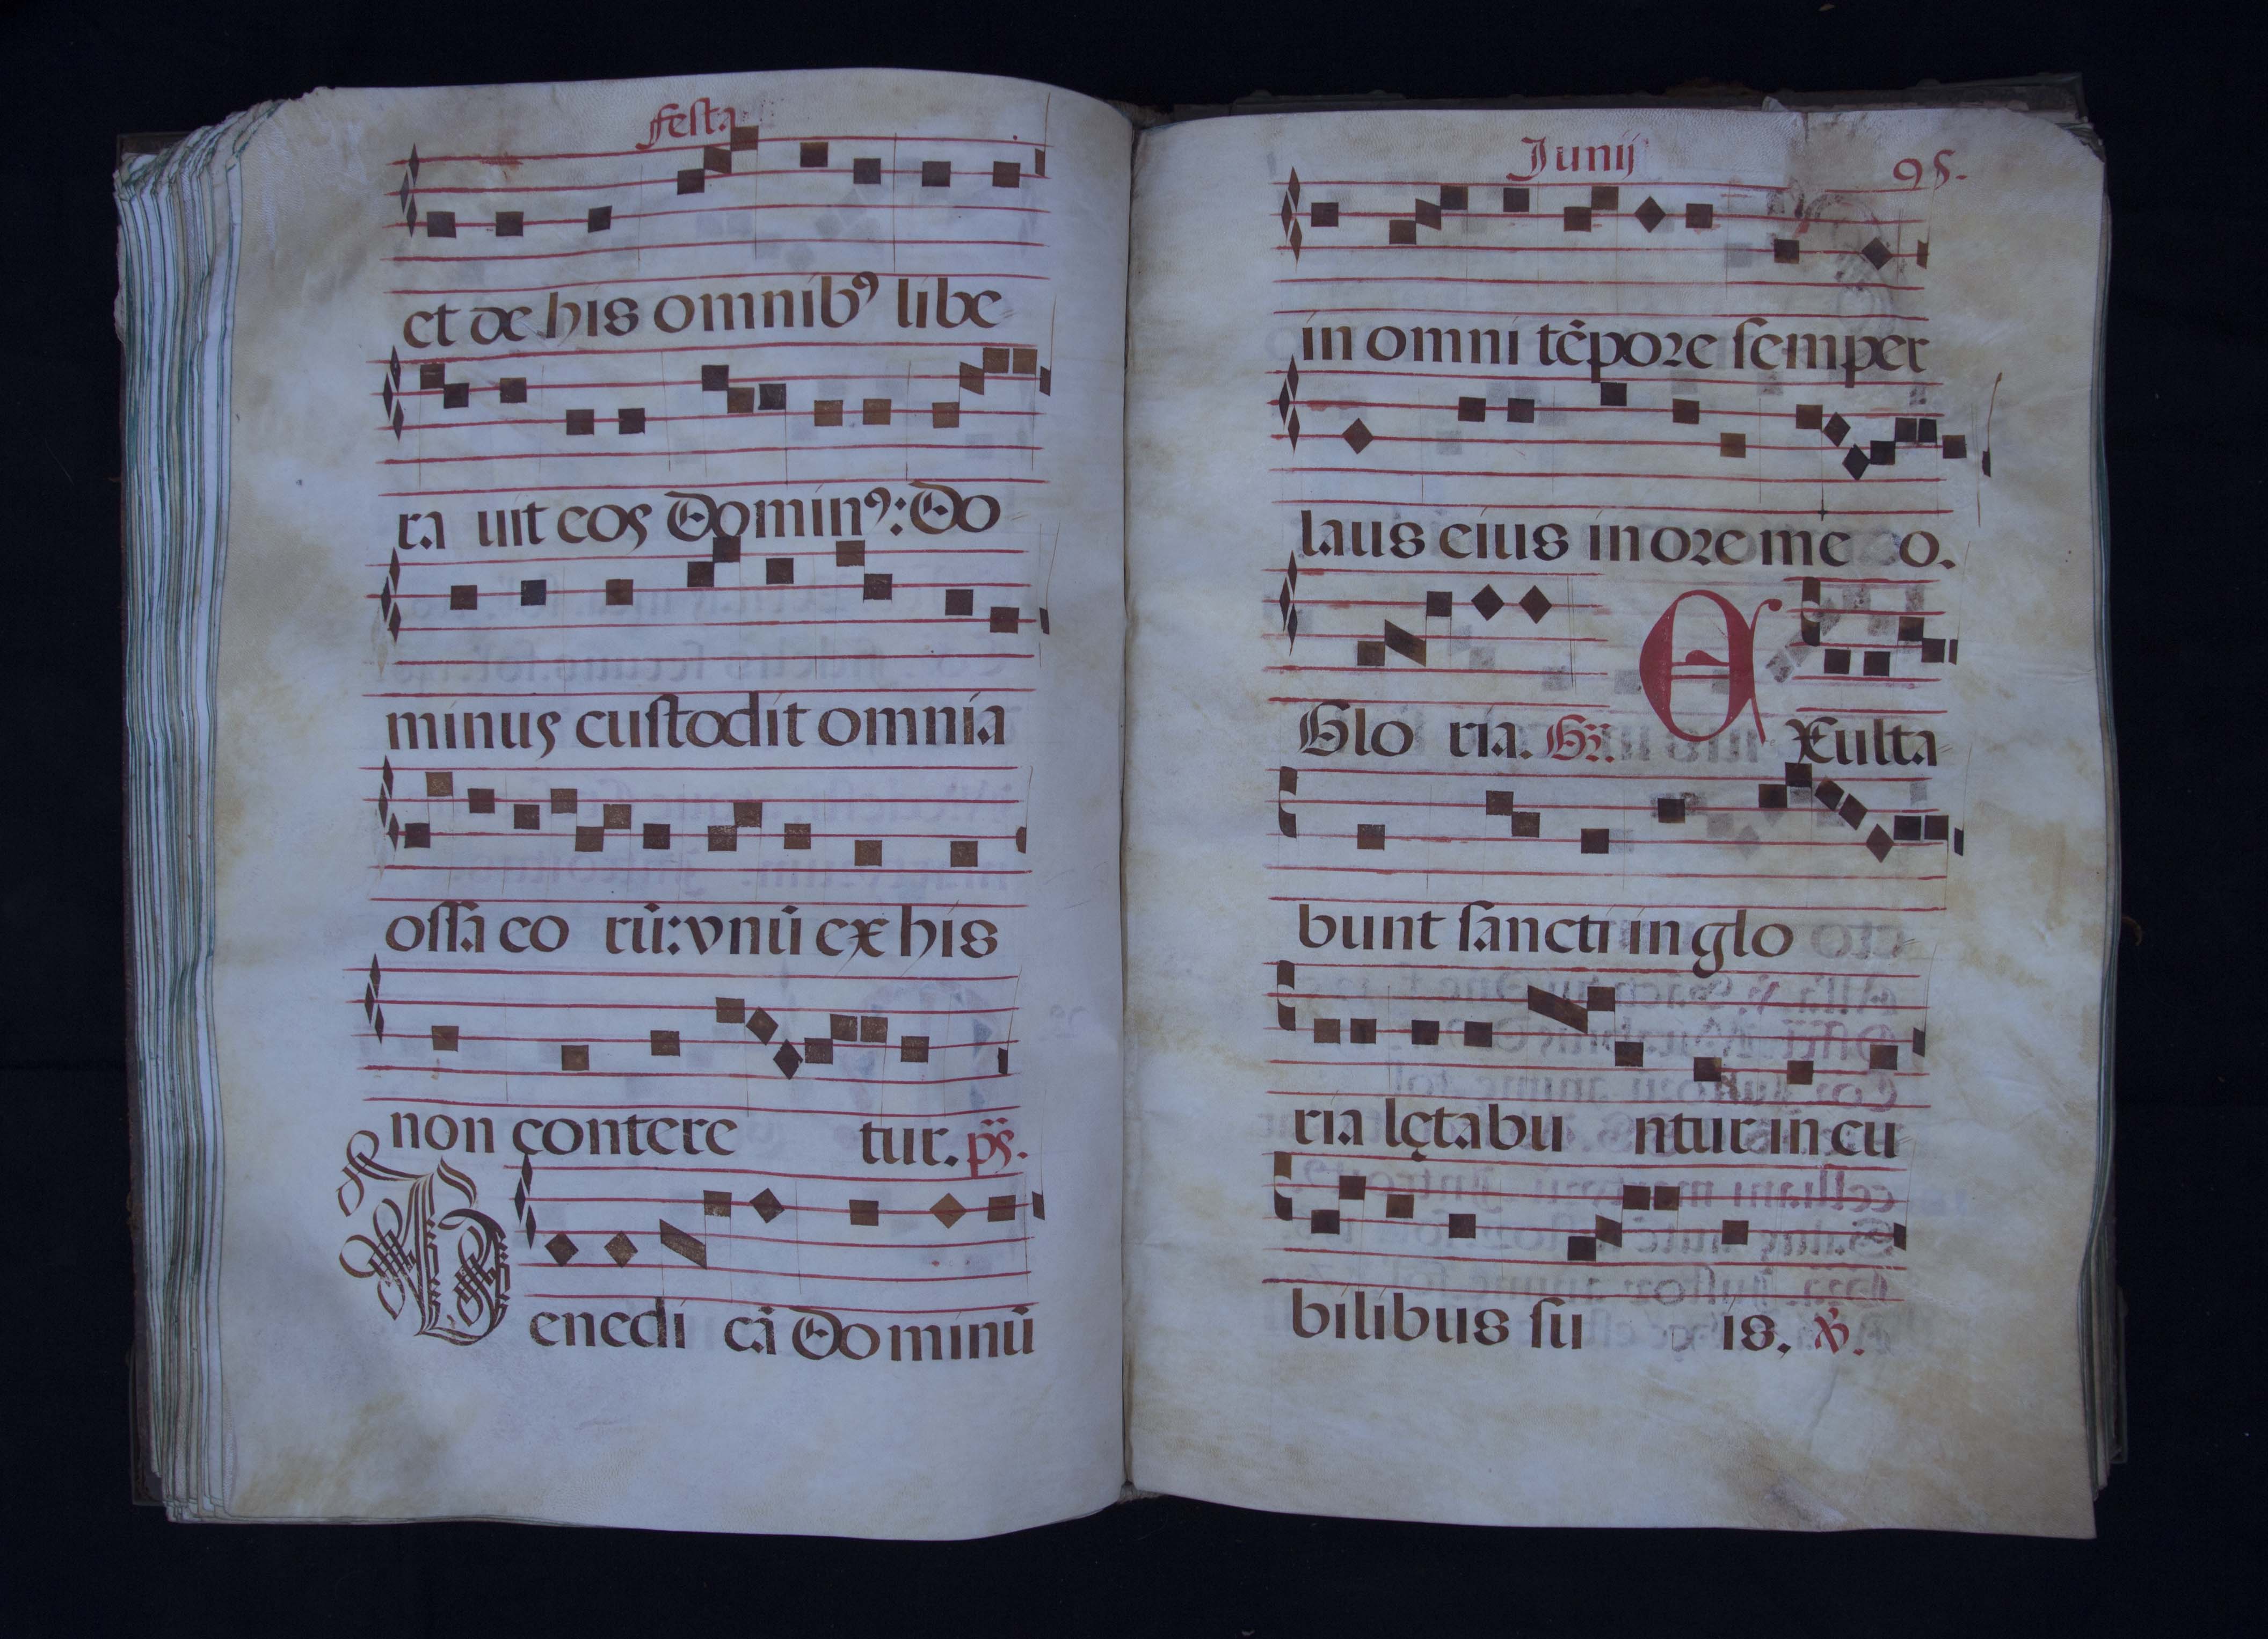 festa
et de his omnibꝰ libe
ra uit eos Dominꝰ: Do
minus custodit omnia
ossa eo rū: vnū ex his
non contere tur. ps.
Benedi cā Dominū
Junij 95.
in omni tēpore semper
laus eius in ore me o.
Glo ria. Gr. Exulta
bunt sancti in glo
ria lętabu ntur in cu
bilibus su is. ℣.